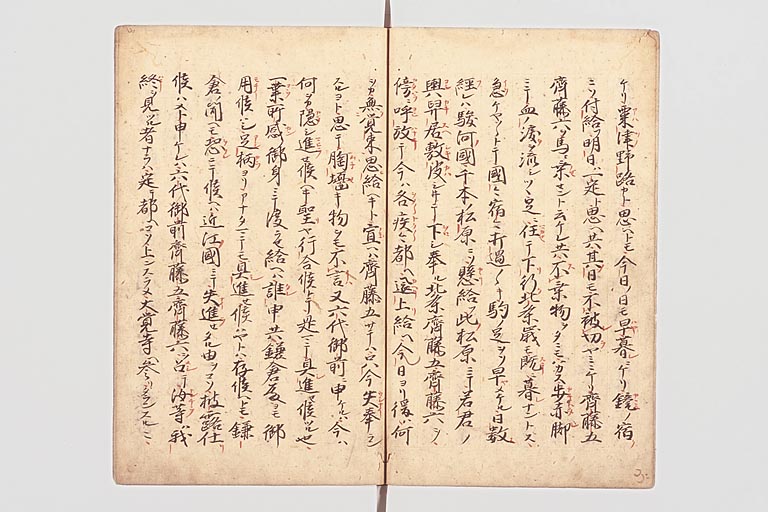 ケリ粟津野路ヤト思ヘトモ今日ノ日モ早暮ニケリ鏡ノ宿
ニソ付給フ明日一定ト思ヘ共其日モ不被切ヤミニケリ齊藤五
齊藤六ハ馬ニ乗セント云ケレ共不乗物ヲタニモハカス歩赤脚
ニテ血ノ涙ヲ流シツヽ足ニ任テ下行北条
急ケヤトテ國々宿々打過々々駒ノ足ヲソ早メケル日数
經レハ駿河國千本ノ松原ニソ懸給此松原ニテ若君ノ
輿舁居敷皮シキテ下シ奉ル北条齊藤五齊藤六ヲ
傍ニ呼放テ今ハ各疾々都ヘ返上給ヘ今日ヨリ後ハ何
シカ無覚束思給ヘキト宣ヘハ齊藤五サテハ只今失奉ラン
スルヨト思テ胸塞キ物ヲモ不言又六代御前ニ申ケルハ今ハ
何ヲカ隠シ進セ候ヘキ聖ヤ行合候トテ是マテ具進セ候ツル也
一業所感御身ニテ渡ラせ給ヘハ誰申共鎌倉殿ヨモ御
用候ハシ足柄ヨリアナタマテモ具進セ候ハヤトハ存候ヘトモ鎌
倉ノ聞モ恐ニテ候ヘハ近江國ニテ失進セタル由ヲコソ披露仕
候ハント申ケレハ六代御前齊藤五齊藤六ヲ召テ汝等我
終ヲ見ツル者ナラハ定テ都ヘコソ上ンスラメ大覚寺ヘ参